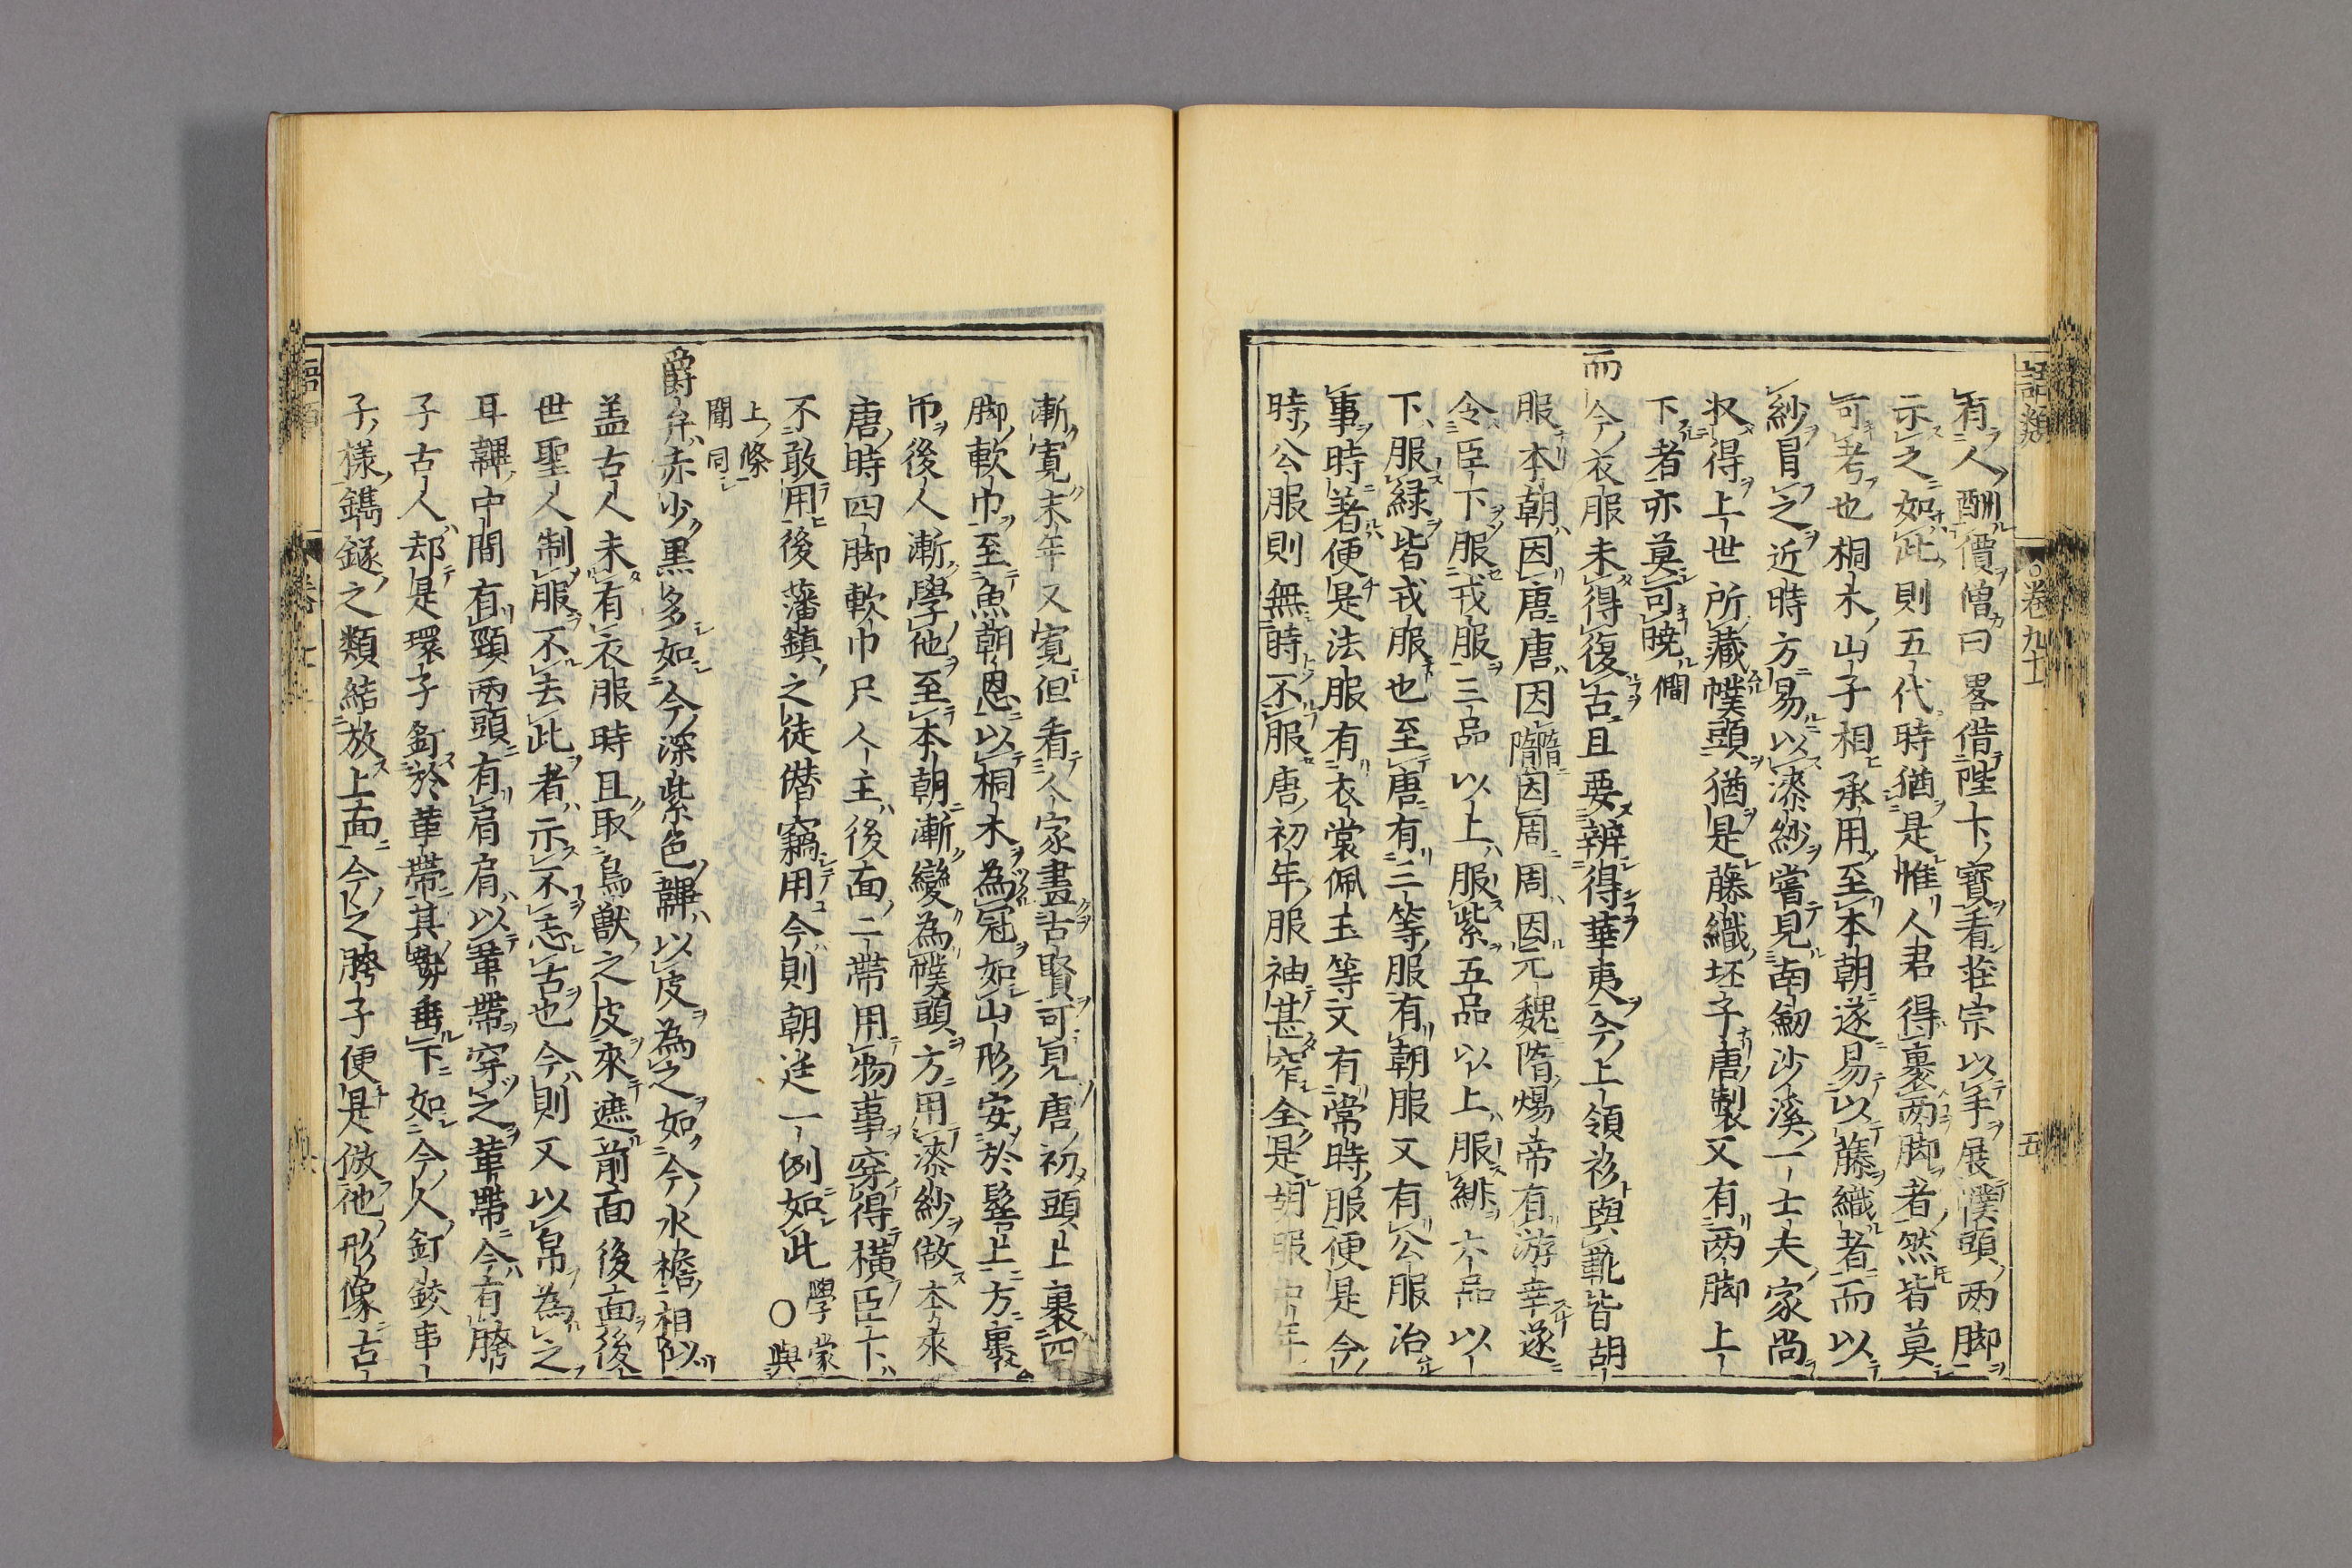 語類 卷九十一 五
有人酬價僧曰畧借陛下寶看莊宗以手展幞頭兩脚
示之如此則五代時猶是惟人君得裹兩脚者然皆莫
可考也桐木山子相承用至本朝遂易以藤織者而以
紗冒之近時方易以漆紗嘗見南劒沙溪一士夫家尚
収得上世所藏幞頭猶是藤織坯子唐製又有兩脚上
下者亦莫可曉僴
而今衣服未得復古且要辨得華夷今上領衫與靴皆胡
服本朝因唐唐因隋隋因周周因元魏隋煬帝有游幸遂
令臣下服戎服三品以上服紫五品以上服緋六品以
下服緑皆戎服也至唐有三等服有朝服又有公服治
事時著便是法服有衣裳佩玉等文有常時服便是今
時公服則無時不服唐初年服袖甚窄全是胡服中年
漸寛末年又寛但看人家畫古賢可見唐初頭上裹四
脚軟巾至魚朝恩以桐木為冠如山形安於髻上方裹
巾後人漸學他至本朝漸變為幞頭方用漆紗做本來
唐時四脚軟巾只人主後面二帶用物事穿得横臣下
不敢用後藩鎮之徒僣竊用今則朝廷一例如此學蒙〇與
上條聞同
爵弁赤少黒多如今深紫色韠以皮為之如今水檐相似
盖古人未有衣服時且取鳥獸之皮來遮前面後面後
世聖人制服不去此者示不忘古也今則又以帛為之
耳韠中間有頸兩頭有肩肩以革帶穿之革帶今有胯
子古人却是環子釘於革帶其勢垂下如今人釘鉸串
子様鐫鐩之類結放上面今之胯子便是倣他形像古